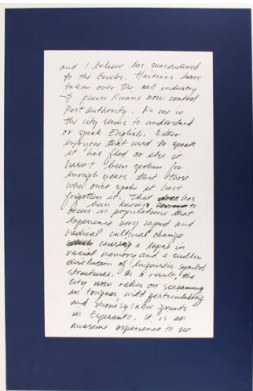 and I believe has surrendered
to the Greeks. Haitians have
taken over the art industry
& Puerto Ricans now control
Port Authority. No one in
the city seems to understand
or speak English. Either
everyone that used to speak
it has fled or else it
hasn't been spoken for
enough years that those
who once spoke it have
forgotten it. That does has
been known to
occur in populations that
experience very rapid and
radical cultural change
causing a lapse in
racial memory and a sudden
dissolution of linguistic symbol
structures. As a result, the
city now relies on screaming
in tongues, wild gesticulating
and monosyllabic grunts
in Esperanto. It is an
awesome experience to see